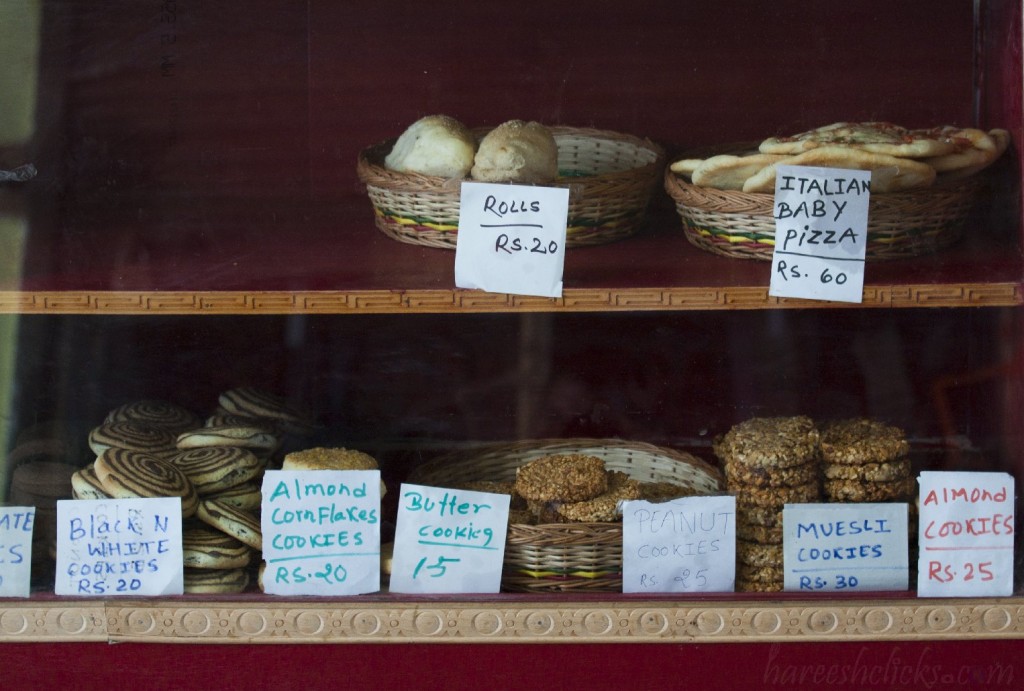 ROLLS
RS.20
ITALIAN
BABY
PIZZA
RS. 60
BLACK N
WHITE
COOKIES
RS.20
Almond
CORNFLAKES
COOKIES
RS.20
Butter
cooking
15
PEANUT
COOKIES
RS. 25
MUESLI
COOKIES
RS.30
ALMOND
COOKIES
RS.25
hareeshclicks.com